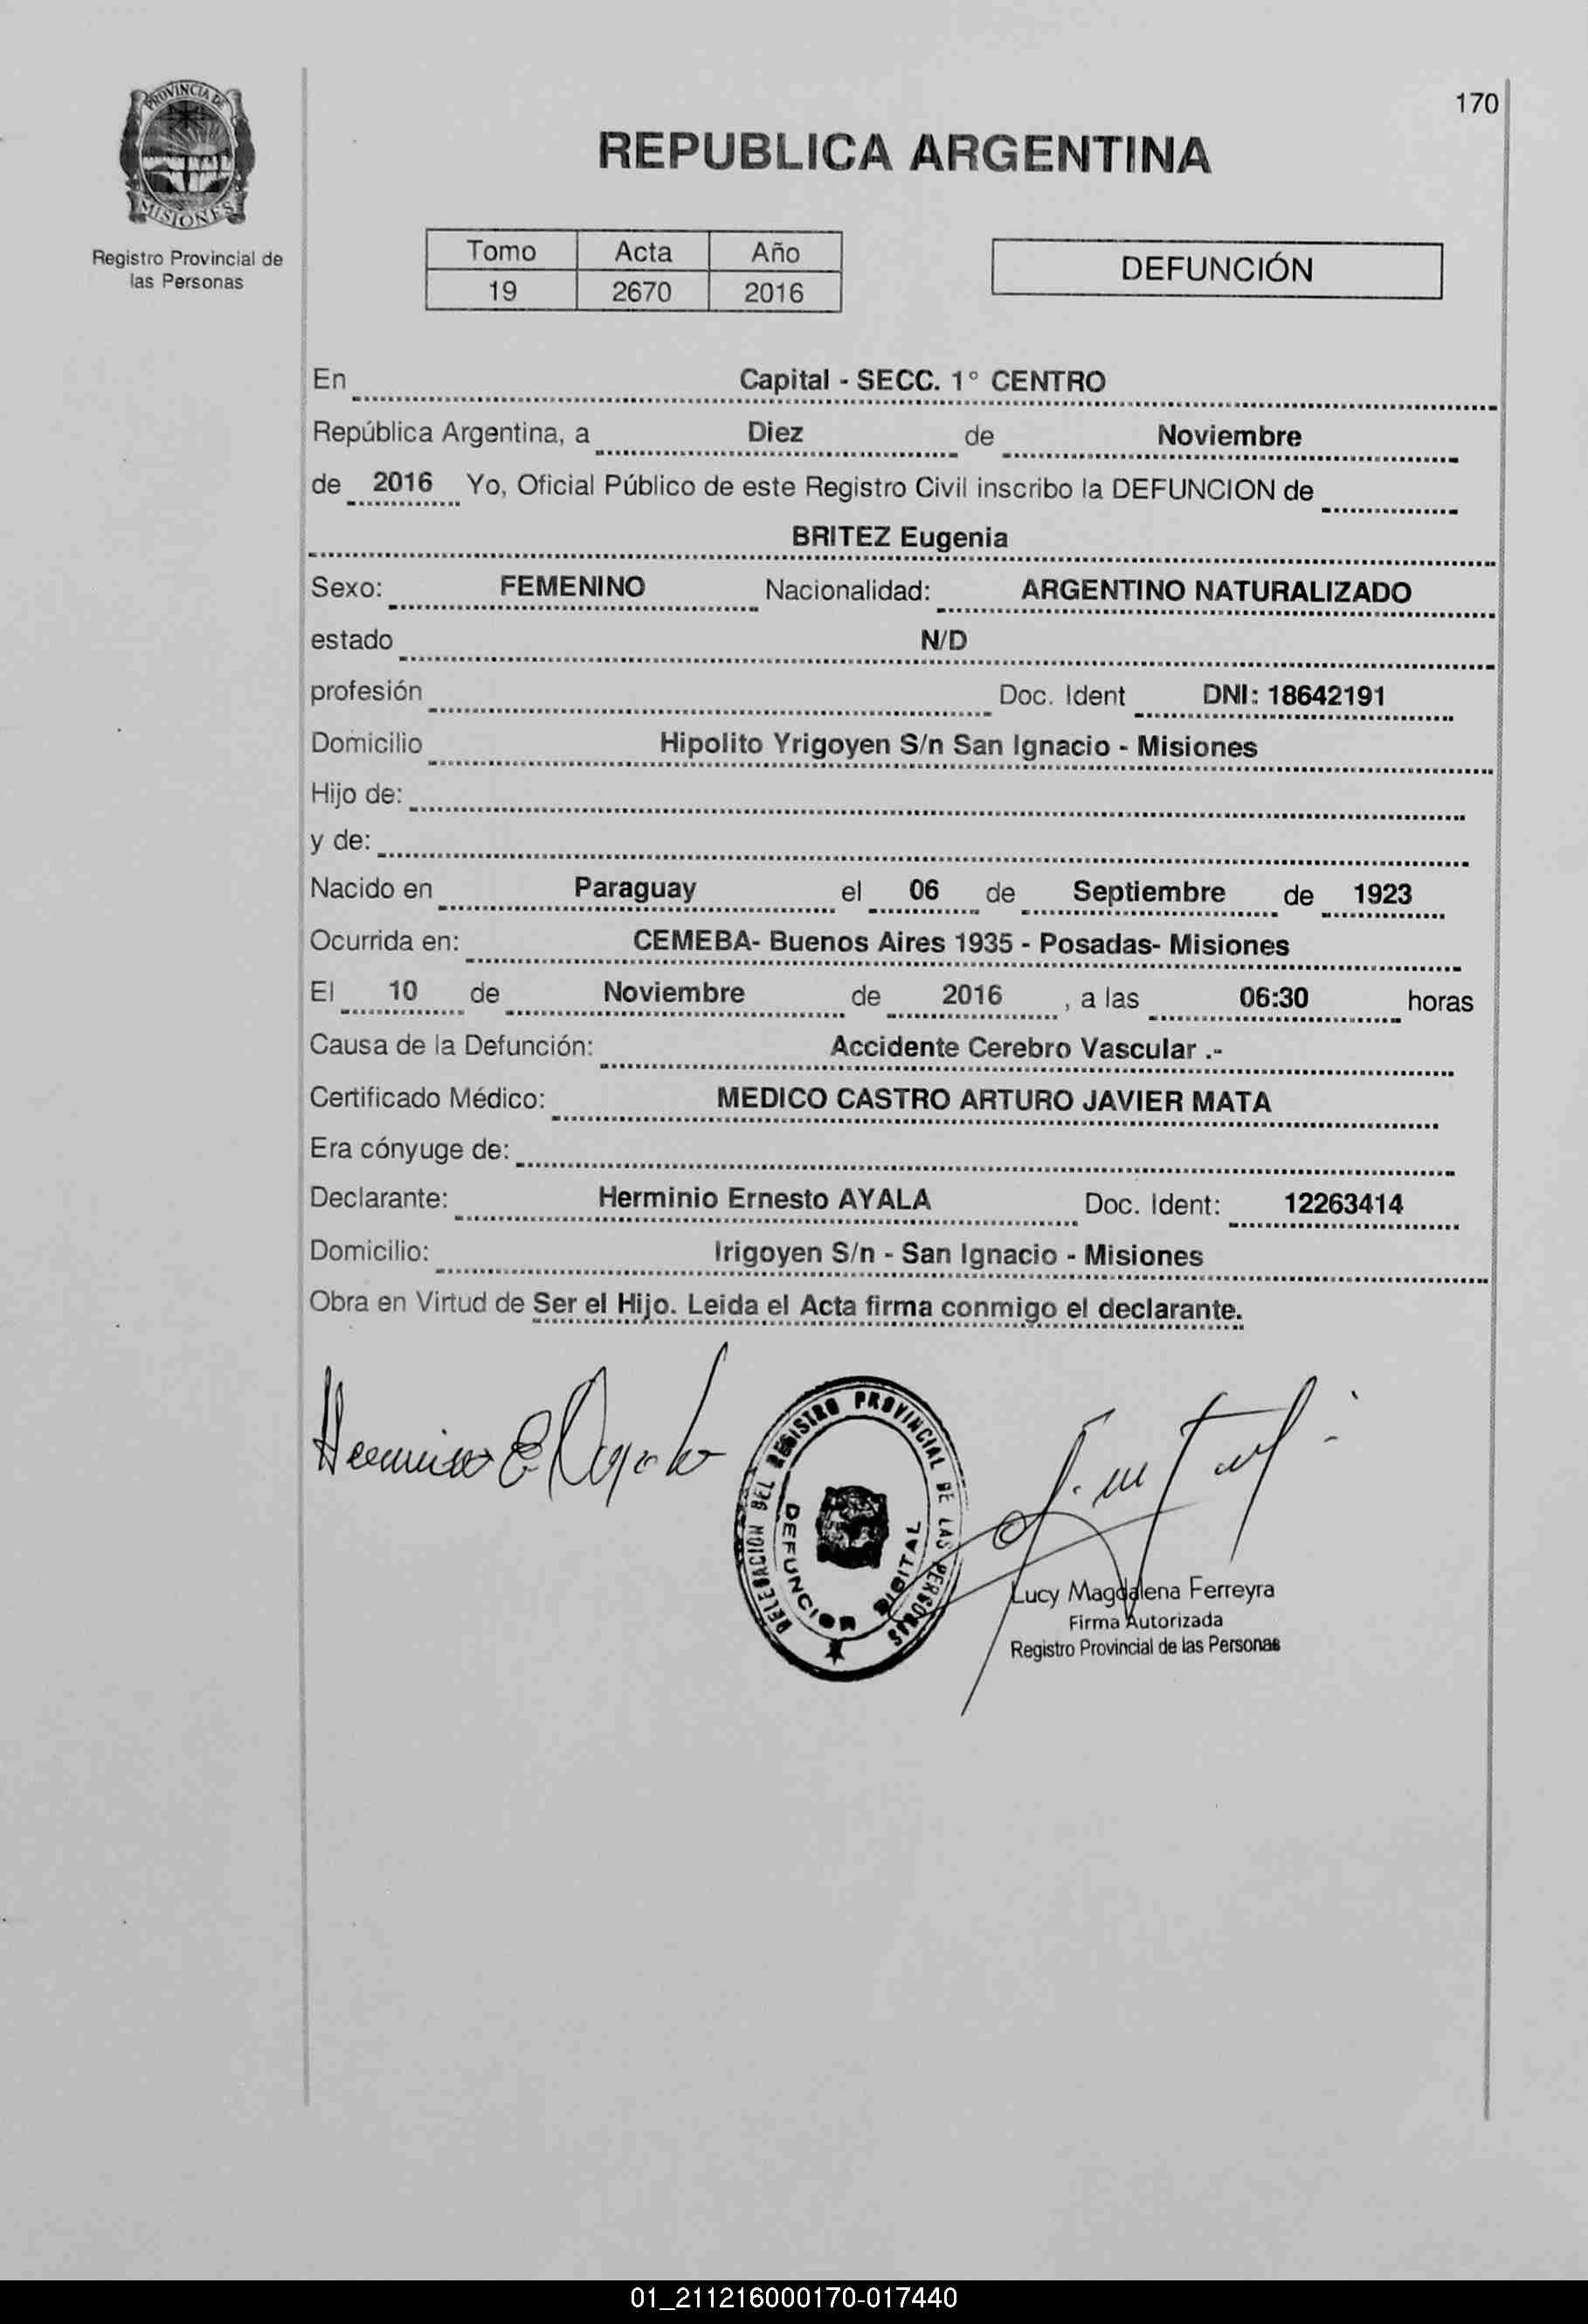 170
PROVINCIA DE
MISIONES
Registro Provincial de
las Personas
REPUBLICA ARGENTINA
Tomo Acta Año
19 2670 2016
DEFUNCIÓN
En Capital - SECC. 1° CENTRO
República Argentina, a Diez de Noviembre
de 2016 Yo, Oficial Público de este Registro Civil inscribo la DEFUNCION de
BRITEZ Eugenia
Sexo: FEMENINO Nacionalidad: ARGENTINO NATURALIZADO
estado N/D
profesión Doc. Ident DNI: 18642191
Domicilio Hipolito Yrigoyen S/n San Ignacio - Misiones
Hijo de:
y de:
Nacido en Paraguay el 06 de Septiembre de 1923
Ocurrida en: CEMEBA- Buenos Aires 1935 - Posadas- Misiones
El 10 de Noviembre de 2016 , a las 06:30 horas
Causa de la Defunción: Accidente Cerebro Vascular .-
Certificado Médico: MEDICO CASTRO ARTURO JAVIER MATA
Era cónyuge de:
Declarante: Herminio Ernesto AYALA Doc. Ident: 12263414
Domicilio: Irigoyen S/n - San Ignacio - Misiones
Obra en Virtud de Ser el Hijo. Leida el Acta firma conmigo el declarante.
DELEGACION DEL REGISTRO PROVINCIAL DE LAS PERSONAS
DEFUNCION DIGITAL
Lucy Magdalena Ferreyra
Firma Autorizada
Registro Provincial de las Personas
01_211216000170-017440